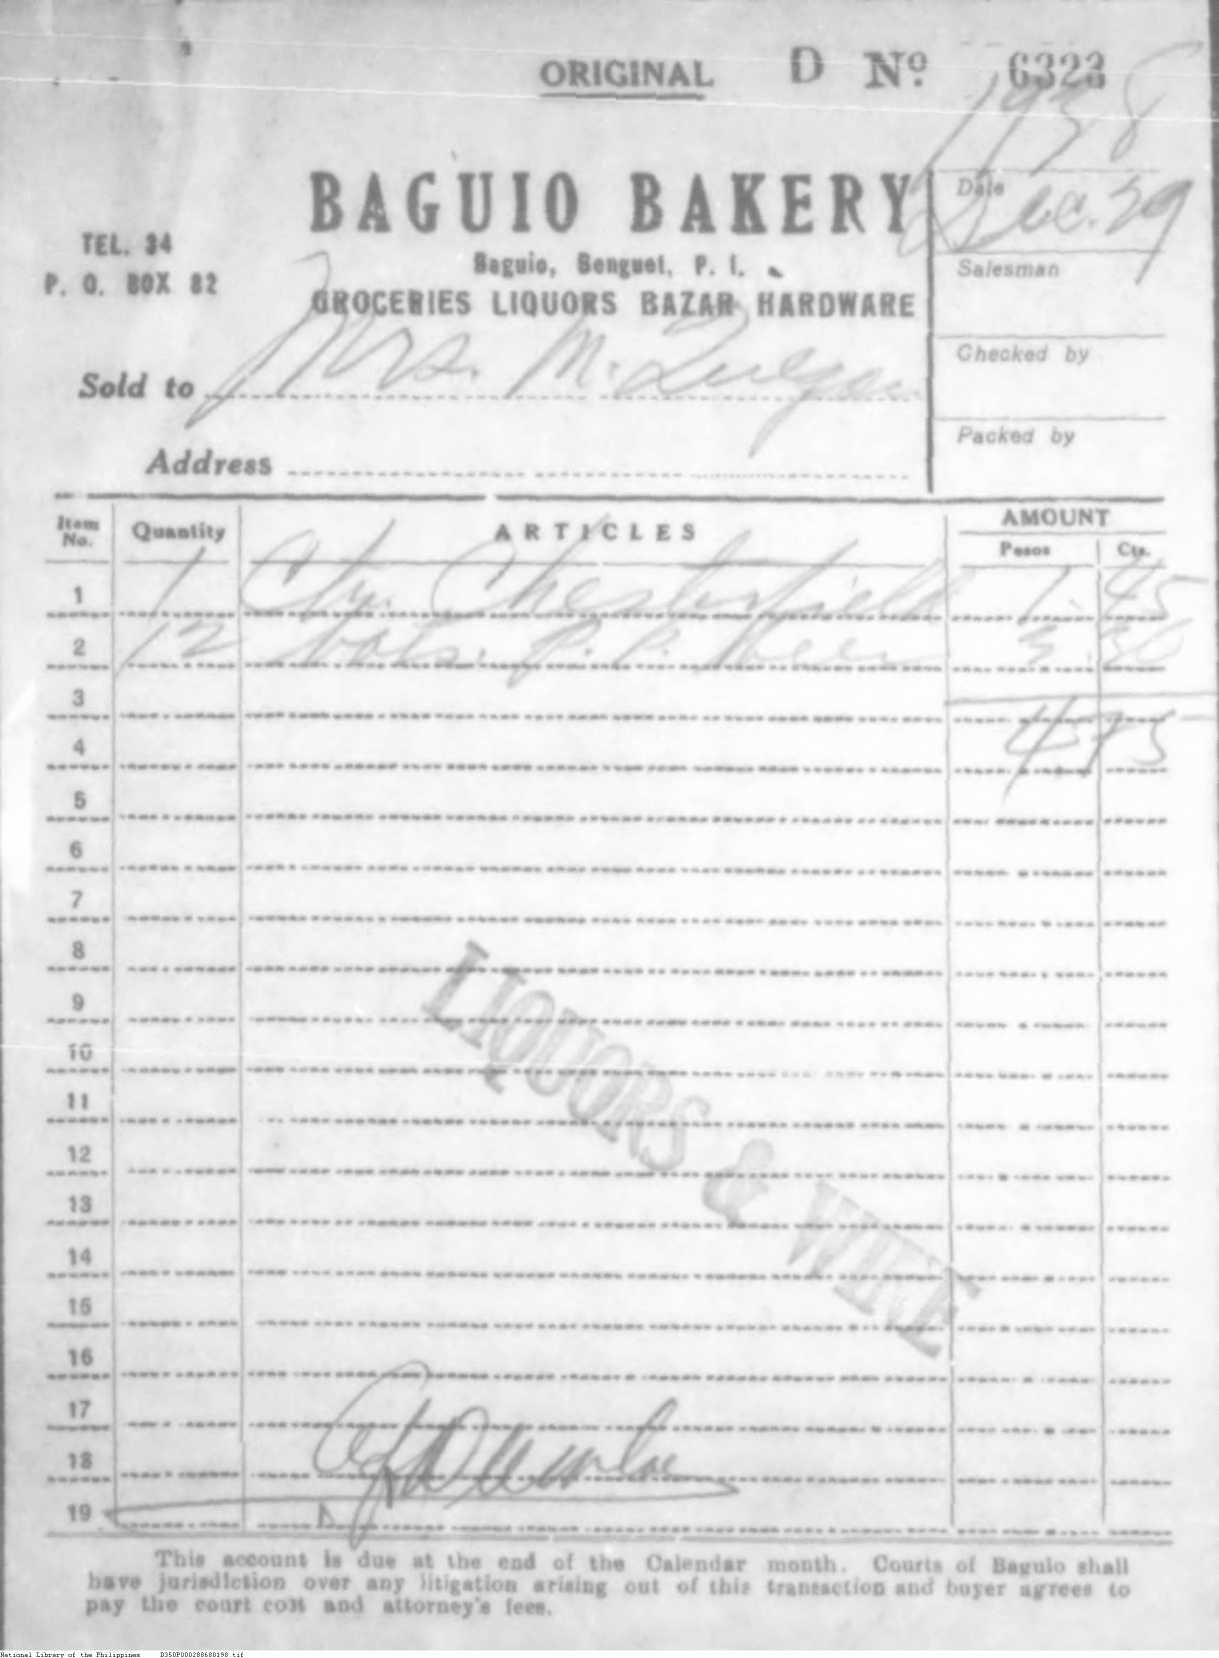 ORIGINAL D No. 6323
1938
BAGUIO BAKERY
Date Dec. 29
TEL. 34
Baguio, Benguet, P. I.
P. O. BOX 82
Salesman
GROCERIES LIQUORS BAZAR HARDWARE
Checked by
Sold to Mrs. M. Quezon
Packed by
Address
Item No. Quantity ARTICLES AMOUNT
Pesos Cts.
1 1 Ctn. Chesterfield 1.45
2 12 bots. P. P. Beer 3.30
3
4 4.75
5
6
7
8
9
10
11
12
13
14
15
16
17
18
19
LIQUORS & WINE
This account is due at the end of the Calendar month. Courts of Baguio shall
have jurisdiction over any litigation arising out of this transaction and buyer agrees to
pay the court cost and attorney's fees.
National Library of the Philippines D350P000288680198.tif